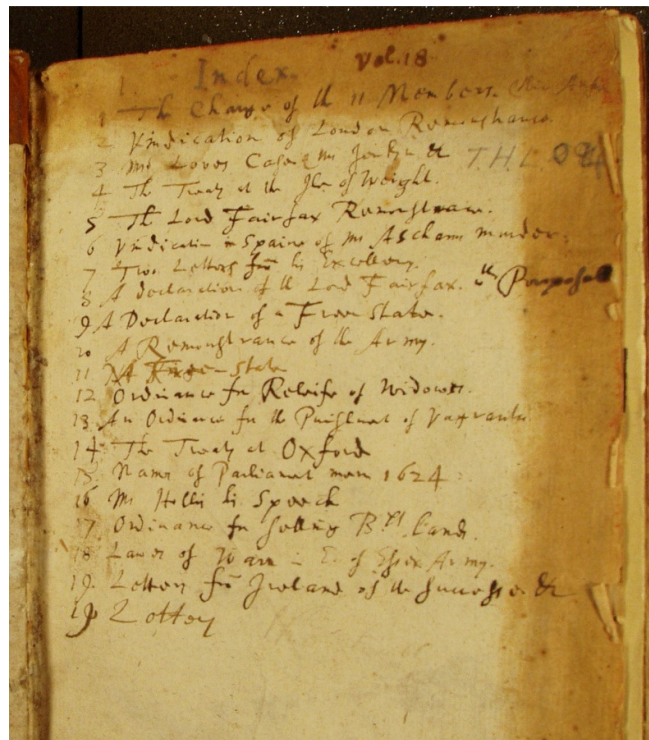 Vol. 18
1. Index
1 The Charge of the 11 Members.
2 Vindication of London Remonstrance
3 Mr Loves Case & Mr Jenkin &c
4 The Treaty at the Ile of Weight.
5 The Lord Fairfax Remonstrance.
6 Vindication in Spaine of Mr Ascham murder.
7 Two Letters from his Excellency.
8 A declaration of the Lord Fairfax. with Proposals
9 A Declaration of a Free State.
10 A Remonstrance of the Army.
11 A Free State
12 Ordinance for Releife of Widowes.
13 An Ordinance for the Punishment of Vagrants
14 The Treaty at Oxford
15 Names of Parliament men 1624
16 Mr Hollis his Speech
17 Ordinance for selling Bps Lands.
18 Lawes of Warr E. of Essex Army.
19 Letters from Ireland of the Successe &c
19 Letters